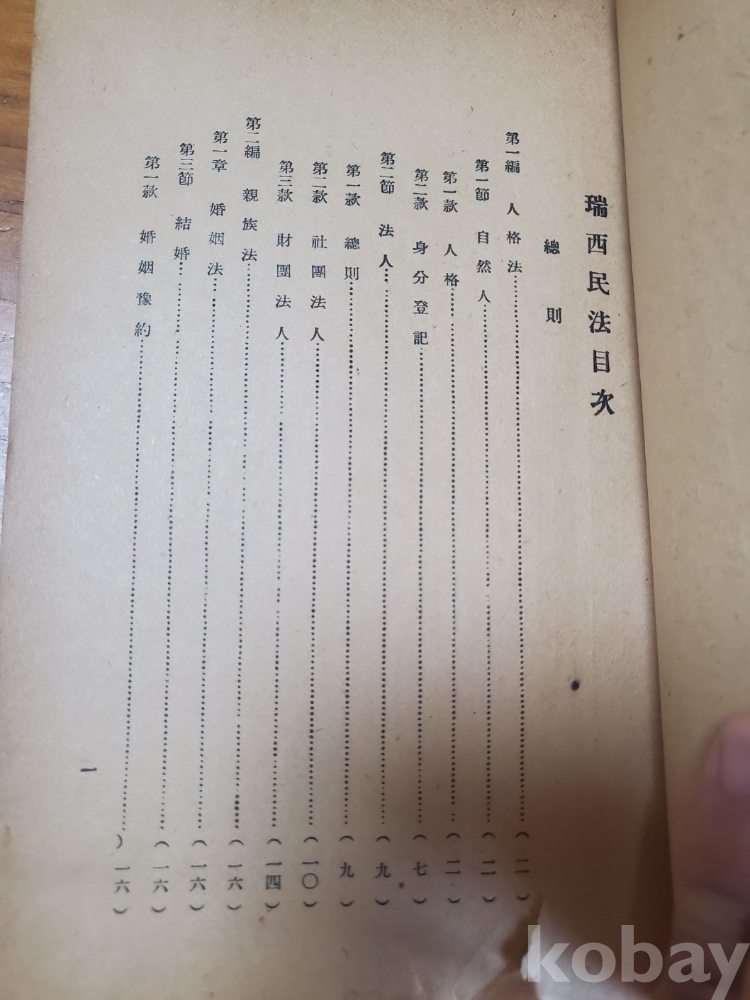 瑞西民法目次
總則
第一編 人格法……(二)
第一節 自然人……(二)
第一款 人格……(二)
第二款 身分登記……(七)
第二節 法人……(九)
第一款 總則……(九)
第二款 社團法人……(一〇)
第三款 財團法人……(一四)
第二編 親族法……(一六)
第一章 婚姻法……(一六)
第三節 結婚……(一六)
第一款 婚姻豫約……(一六)
一
kobay